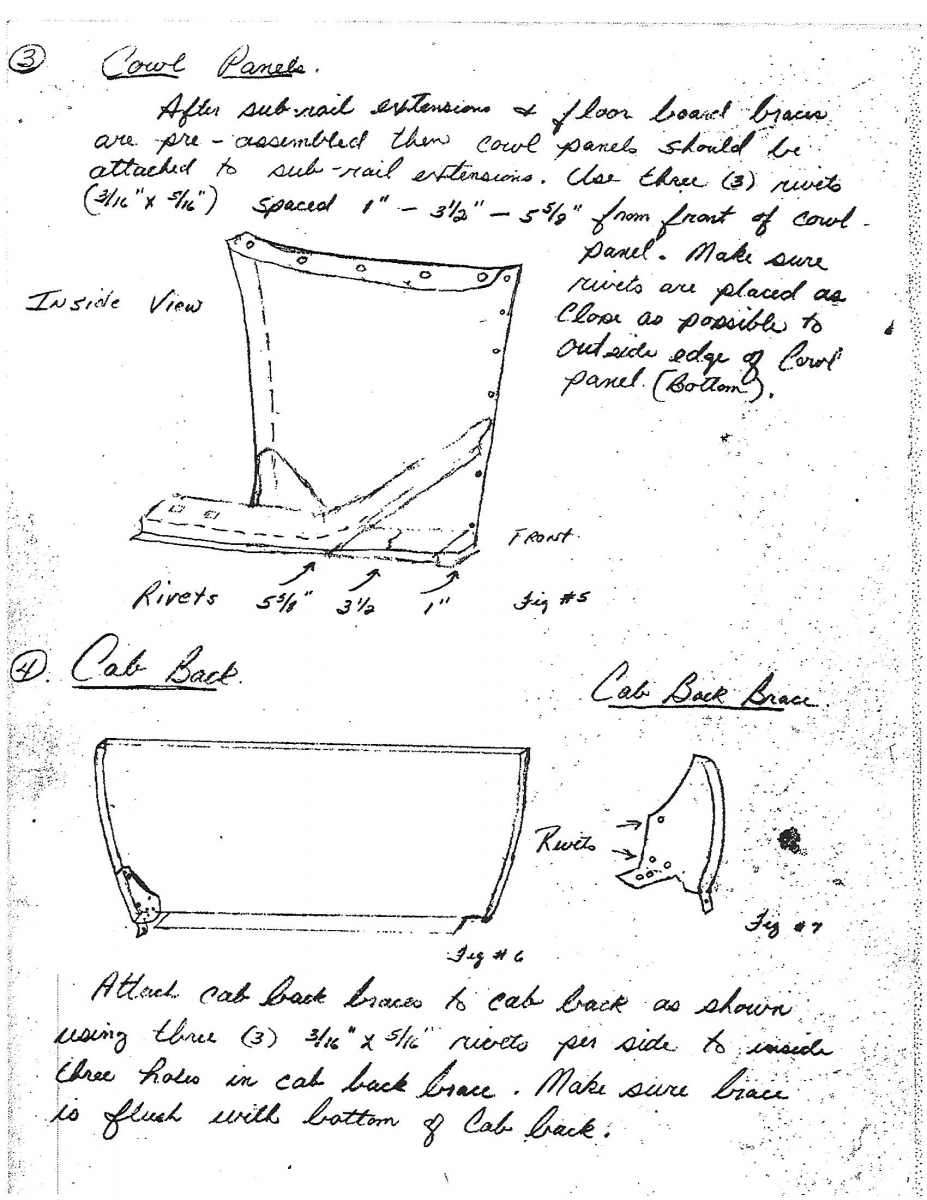 ③ Cowl Panels.
After sub-rail extensions & floor board braces
are pre-assembled then cowl panels should be
attached to sub-rail extensions. Use three (3) rivets
(3/16" x 5/16") spaced 1" - 3 1/2" - 5 5/8" from front of cowl
panel. Make sure
rivets are placed as
close as possible to
outside edge of Cowl
panel. (Bottom).
Inside View
Front
Rivets 5 5/8" 3 1/2 1" Fig #5
④. Cab Back.
Cab Back Brace.
Rivets
Fig #6
Fig #7
Attach cab back braces to cab back as shown
using three (3) 3/16" x 5/16" rivets per side to inside
three holes in cab back brace. Make sure brace
is flush with bottom of Cab back.